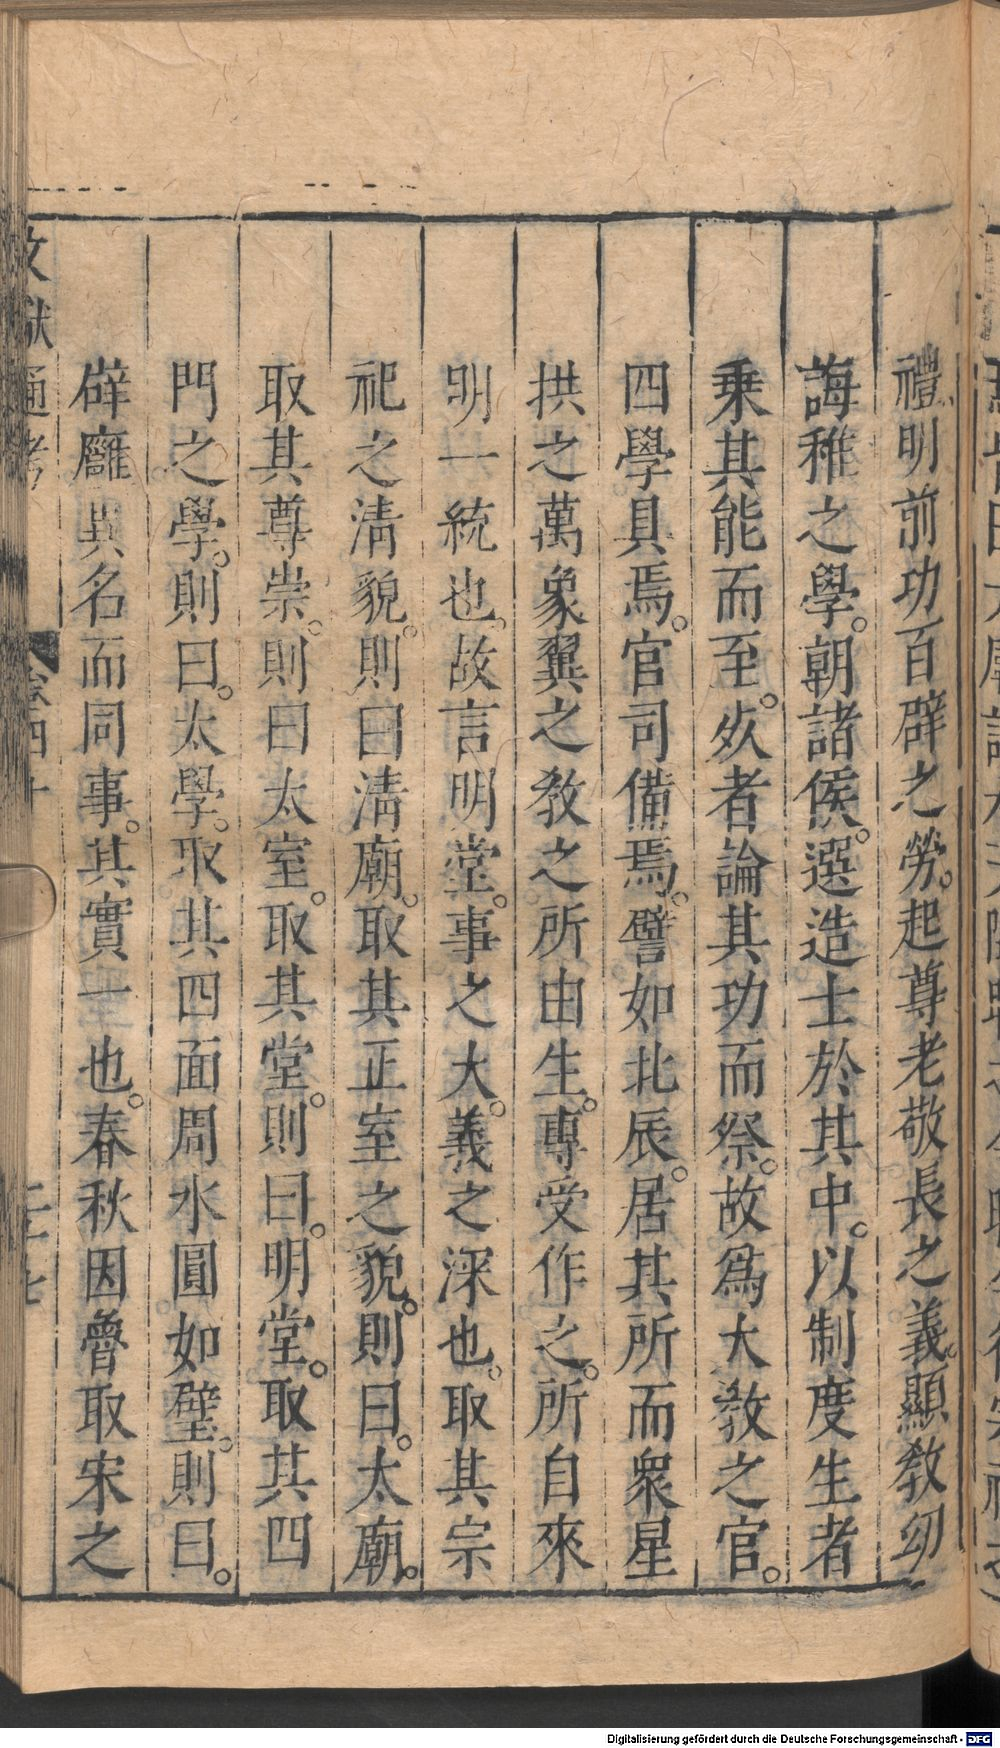 禮明前功百辟之勞。起尊老敬長之義。顯敎幼
誨稚之學。朝諸侯。選造士於其中。以制度生者
乗其能而至。㱙者論其功而祭。故爲大敎之官。
四學具焉。官司備焉。譬如北辰。居其所而衆星
拱之萬象翼之敎之所由生。專受作之。所自來
明一統也。故言明堂。事之大。義之深也。取其宗
祀之淸貌。則曰淸廟。取其正室之貌。則曰。太廟。
取其尊崇。則曰太室。取其堂。則曰。明堂。取其四
門之學。則曰。太學。取其四面周水圓如璧。則曰。
辟廱異名而同事。其實一也。春秋因魯取宋之
文獻通考 卷四十
Digitalisierung gefördert durch die Deutsche Forschungsgemeinschaft - DFG